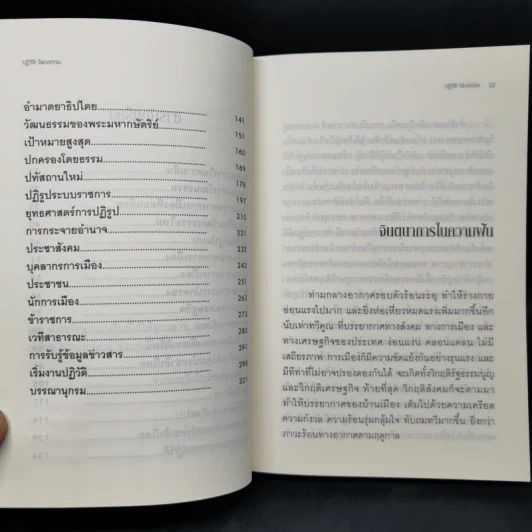 ปฏิวัติ วัฒนธรรม
อำมาตยาธิปไตย 141
วัฒนธรรมของพระมหากษัตริย์ 151
เป้าหมายสูงสุด 160
ปกครองโดยธรรม 169
ปทัสถานใหม่ 178
ปฏิรูประบบราชการ 197
ยุทธศาสตร์การปฏิรูป 210
การกระจายอำนาจ 221
ประชาสังคม 232
บุคลากรการเมือง 243
ประชาชน 251
นักการเมือง 262
ข้าราชการ 271
เวทีสาธารณะ 280
การรับรู้ข้อมูลข่าวสาร 291
เริ่มงานปฏิวัติ 298
บรรณานุกรม 321
ปฏิวัติ วัฒนธรรม
จินตนาการในความฝัน
ท่ามกลางอากาศรอบตัวร้อนระอุ ทำให้ร่างกาย
อ่อนแรงไปมาก และยิ่งห่อเหี่ยวหมดแรงเพิ่มมากขึ้นอีก
นับเท่าทวีคูณ ที่บรรยากาศทางสังคม ทางการเมือง และ
ทางเศรษฐกิจของประเทศ ง่อนแง่น คลอนแคลน ไม่มี
เสถียรภาพ การเมืองก็มีความขัดแย้งกันอย่างรุนแรง และ
มีทีท่าที่ไม่อาจปรองดองกันได้ จะเกิดทั้งวิกฤติรัฐธรรมนูญ
และวิกฤติเศรษฐกิจ ท้ายที่สุด วิกฤติสังคมก็จะตามมา
ทำให้บรรยากาศของบ้านเมือง เต็มไปด้วยความเครียด
ความกังวล ความร้อนรุ่มกลุ้มใจ ทับถมทวีมากขึ้น ยิ่งกว่า
ภาวะร้อนทางอากาศตามฤดูกาล